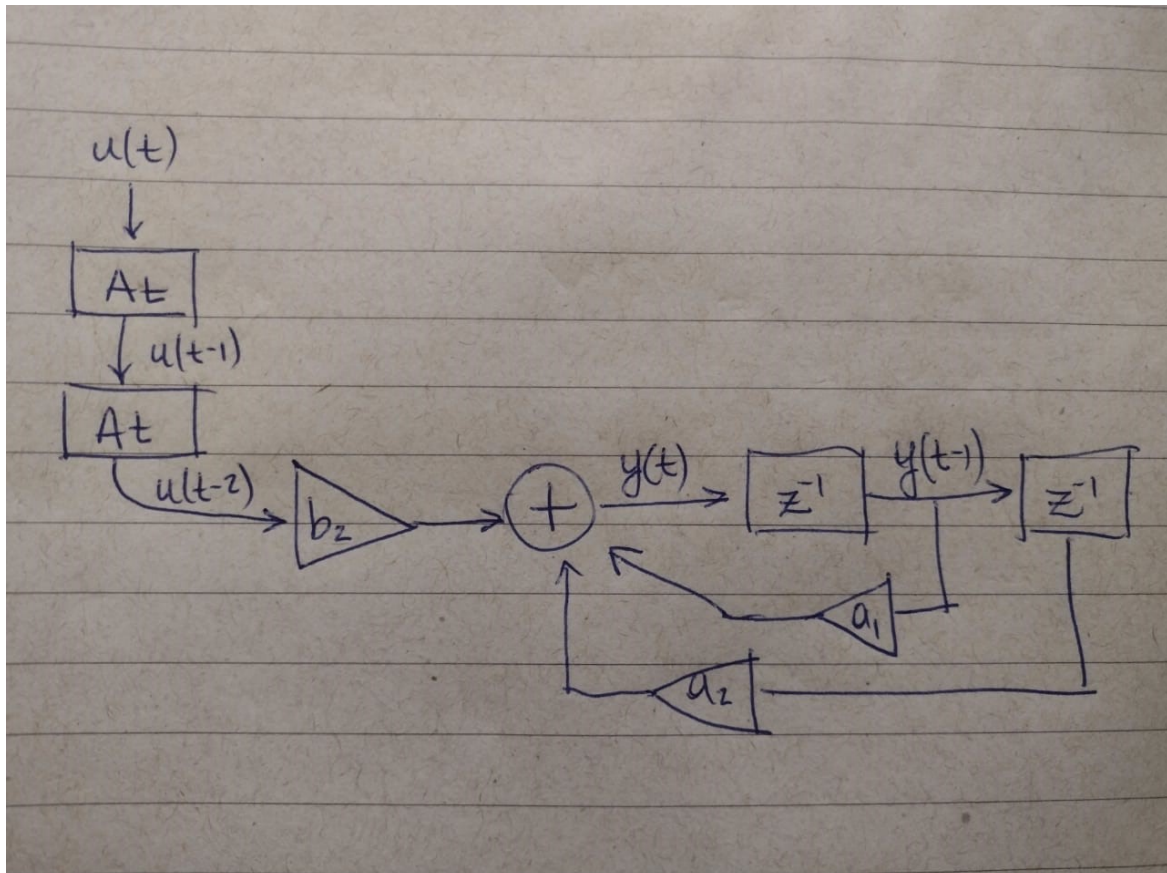 u(t)
At
u(t-1)
At
u(t-2)
b₂
+
y(t)
z⁻¹
y(t-1)
z⁻¹
a₁
a₂